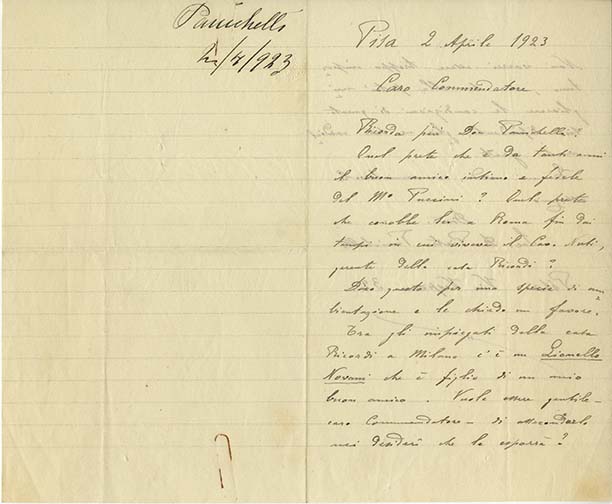 Panichelli
2/4/923
Pisa 2 Aprile 1923
Caro Commendatore
Ricorda più Don Panichelli?
Quel prete che è da tanti anni
il buon amico intimo e fedele
del Mo Puccini? Quel prete
che conobbe lei a Roma fin dai
tempi in cui viveva il Cav. Nuti,
gerente della casa Ricordi?
Dico questo per una specie di am
bientazione e le chiedo un favore.
Tra gli impiegati della casa
Ricordi a Milano c'è un Lionello
Novani che è figlio di un mio
buon amico. Vuole essere gentile -
caro Commendatore - di
nei desideri che le esporrà?